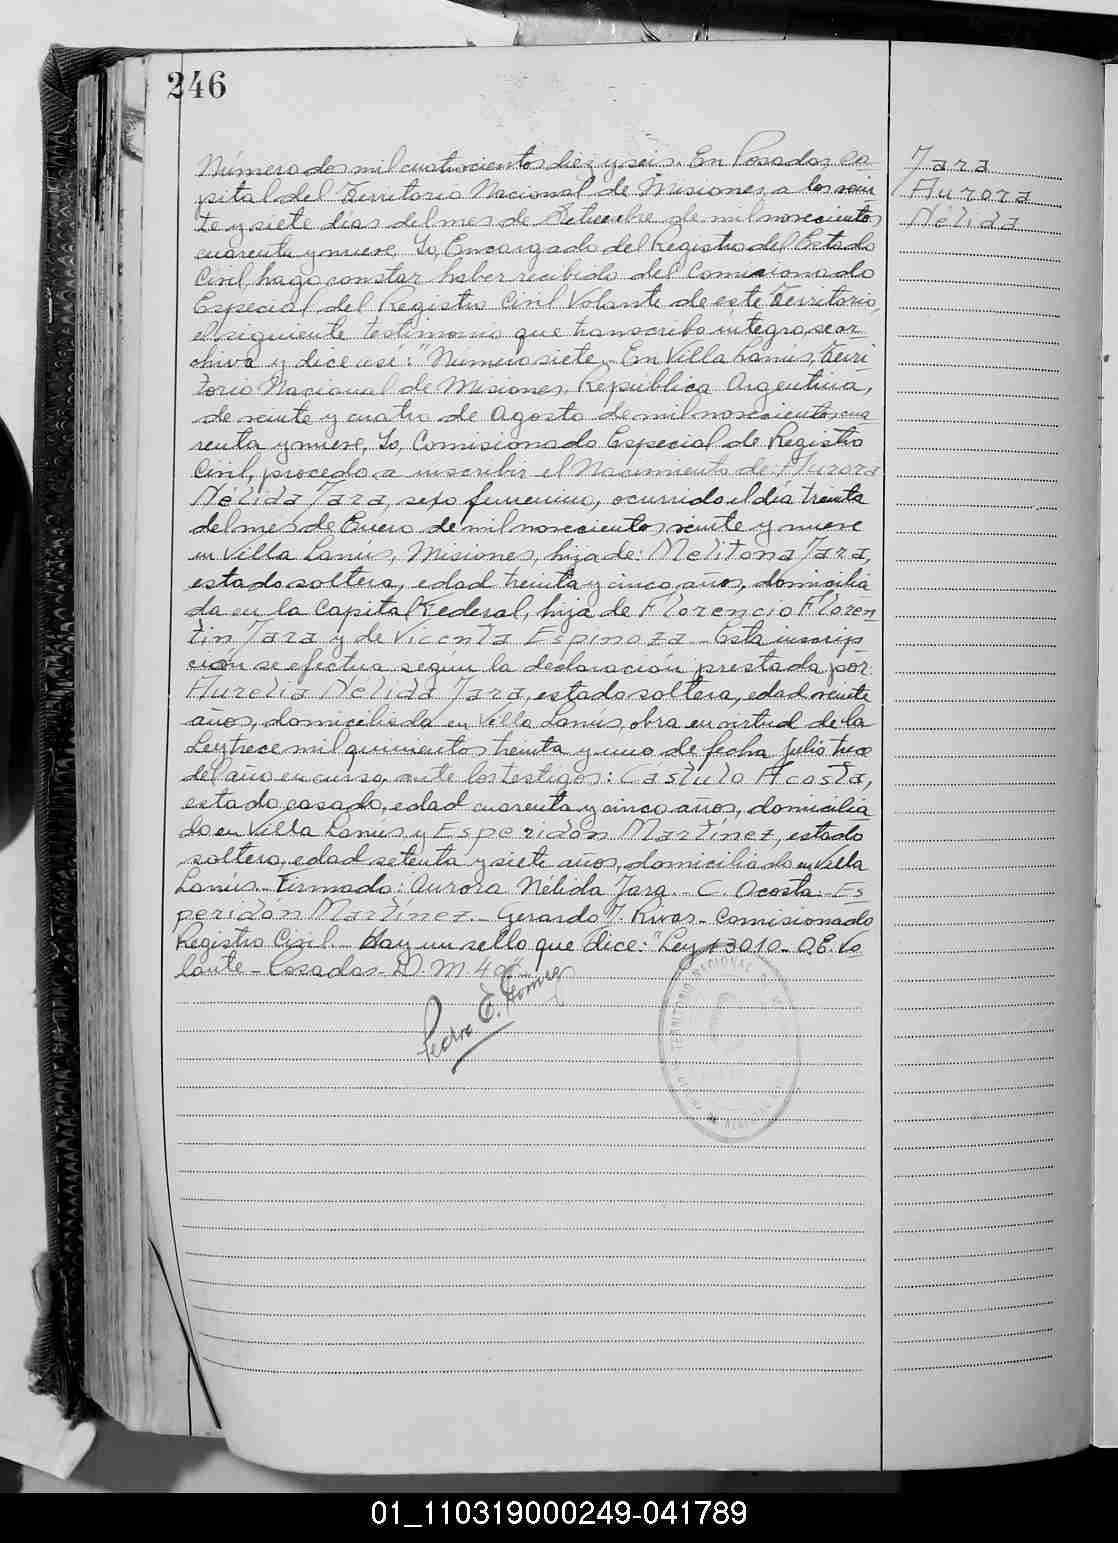 246
Número dos mil cuatrocientos diez y seis. En Posadas, Ca-
pital del Territorio Nacional de Misiones, a los vein
te y siete dias del mes de Setiembre de mil novecientos
cuarenta y nueve, Yo, Encargado del Registro del Estado
Civil, hago constar haber recibido del Comisionado
Especial del Registro Civil Volante de este Territorio,
el siguiente testimonio que transcribo integro, se ar-
chiva y dice asi: "Número siete. En Villa Lanús, Terri
torio Nacional de Misiones, República Argentina,
de veinte y cuatro de Agosto de mil novecientos cua
renta y nueve, Yo, Comisionado Especial de Registro
Civil, procedo a inscribir el Nacimiento de: Aurora
Nélida Jara, sexo femenino, ocurrido el día treinta
del mes de Enero de mil novecientos veinte y nueve
en Villa Lanús, Misiones, hija de: Melitona Jara,
estado soltera, edad treinta y cinco años, domicilia
da en la Capital Federal, hija de Florencio Floren
tin Jara y de Vicenta Espinoza. Esta inscrip
ción se efectua según la declaración prestada por:
Aurelia Nélida Jara, estado soltera, edad veinte
años, domiciliada en Villa Lanús, obra en virtud de la
Ley trece mil quinientos treinta y uno de fecha julio trece
del año en curso, ante los testigos: Castulo Acosta,
estado casado, edad cuarenta y cinco años, domicilia
do en Villa Lanús y Esperidón Martínez, estado
soltero, edad setenta y siete años, domiciliado en Villa
Lanús. Firmado: Aurora Nélida Jara. - C. Acosta. - Es
peridón Martínez. - Gerardo J. Rivas - Comisionado
Registro Civil. - Hay un sello que dice: "Ley 13010 - O.E. Vo
lante - Posadas - D. M. 49"
Pedro E. Gomez
TERRITORIO NACIONAL DE
Jara
Aurora
Nélida
01_110319000249-041789